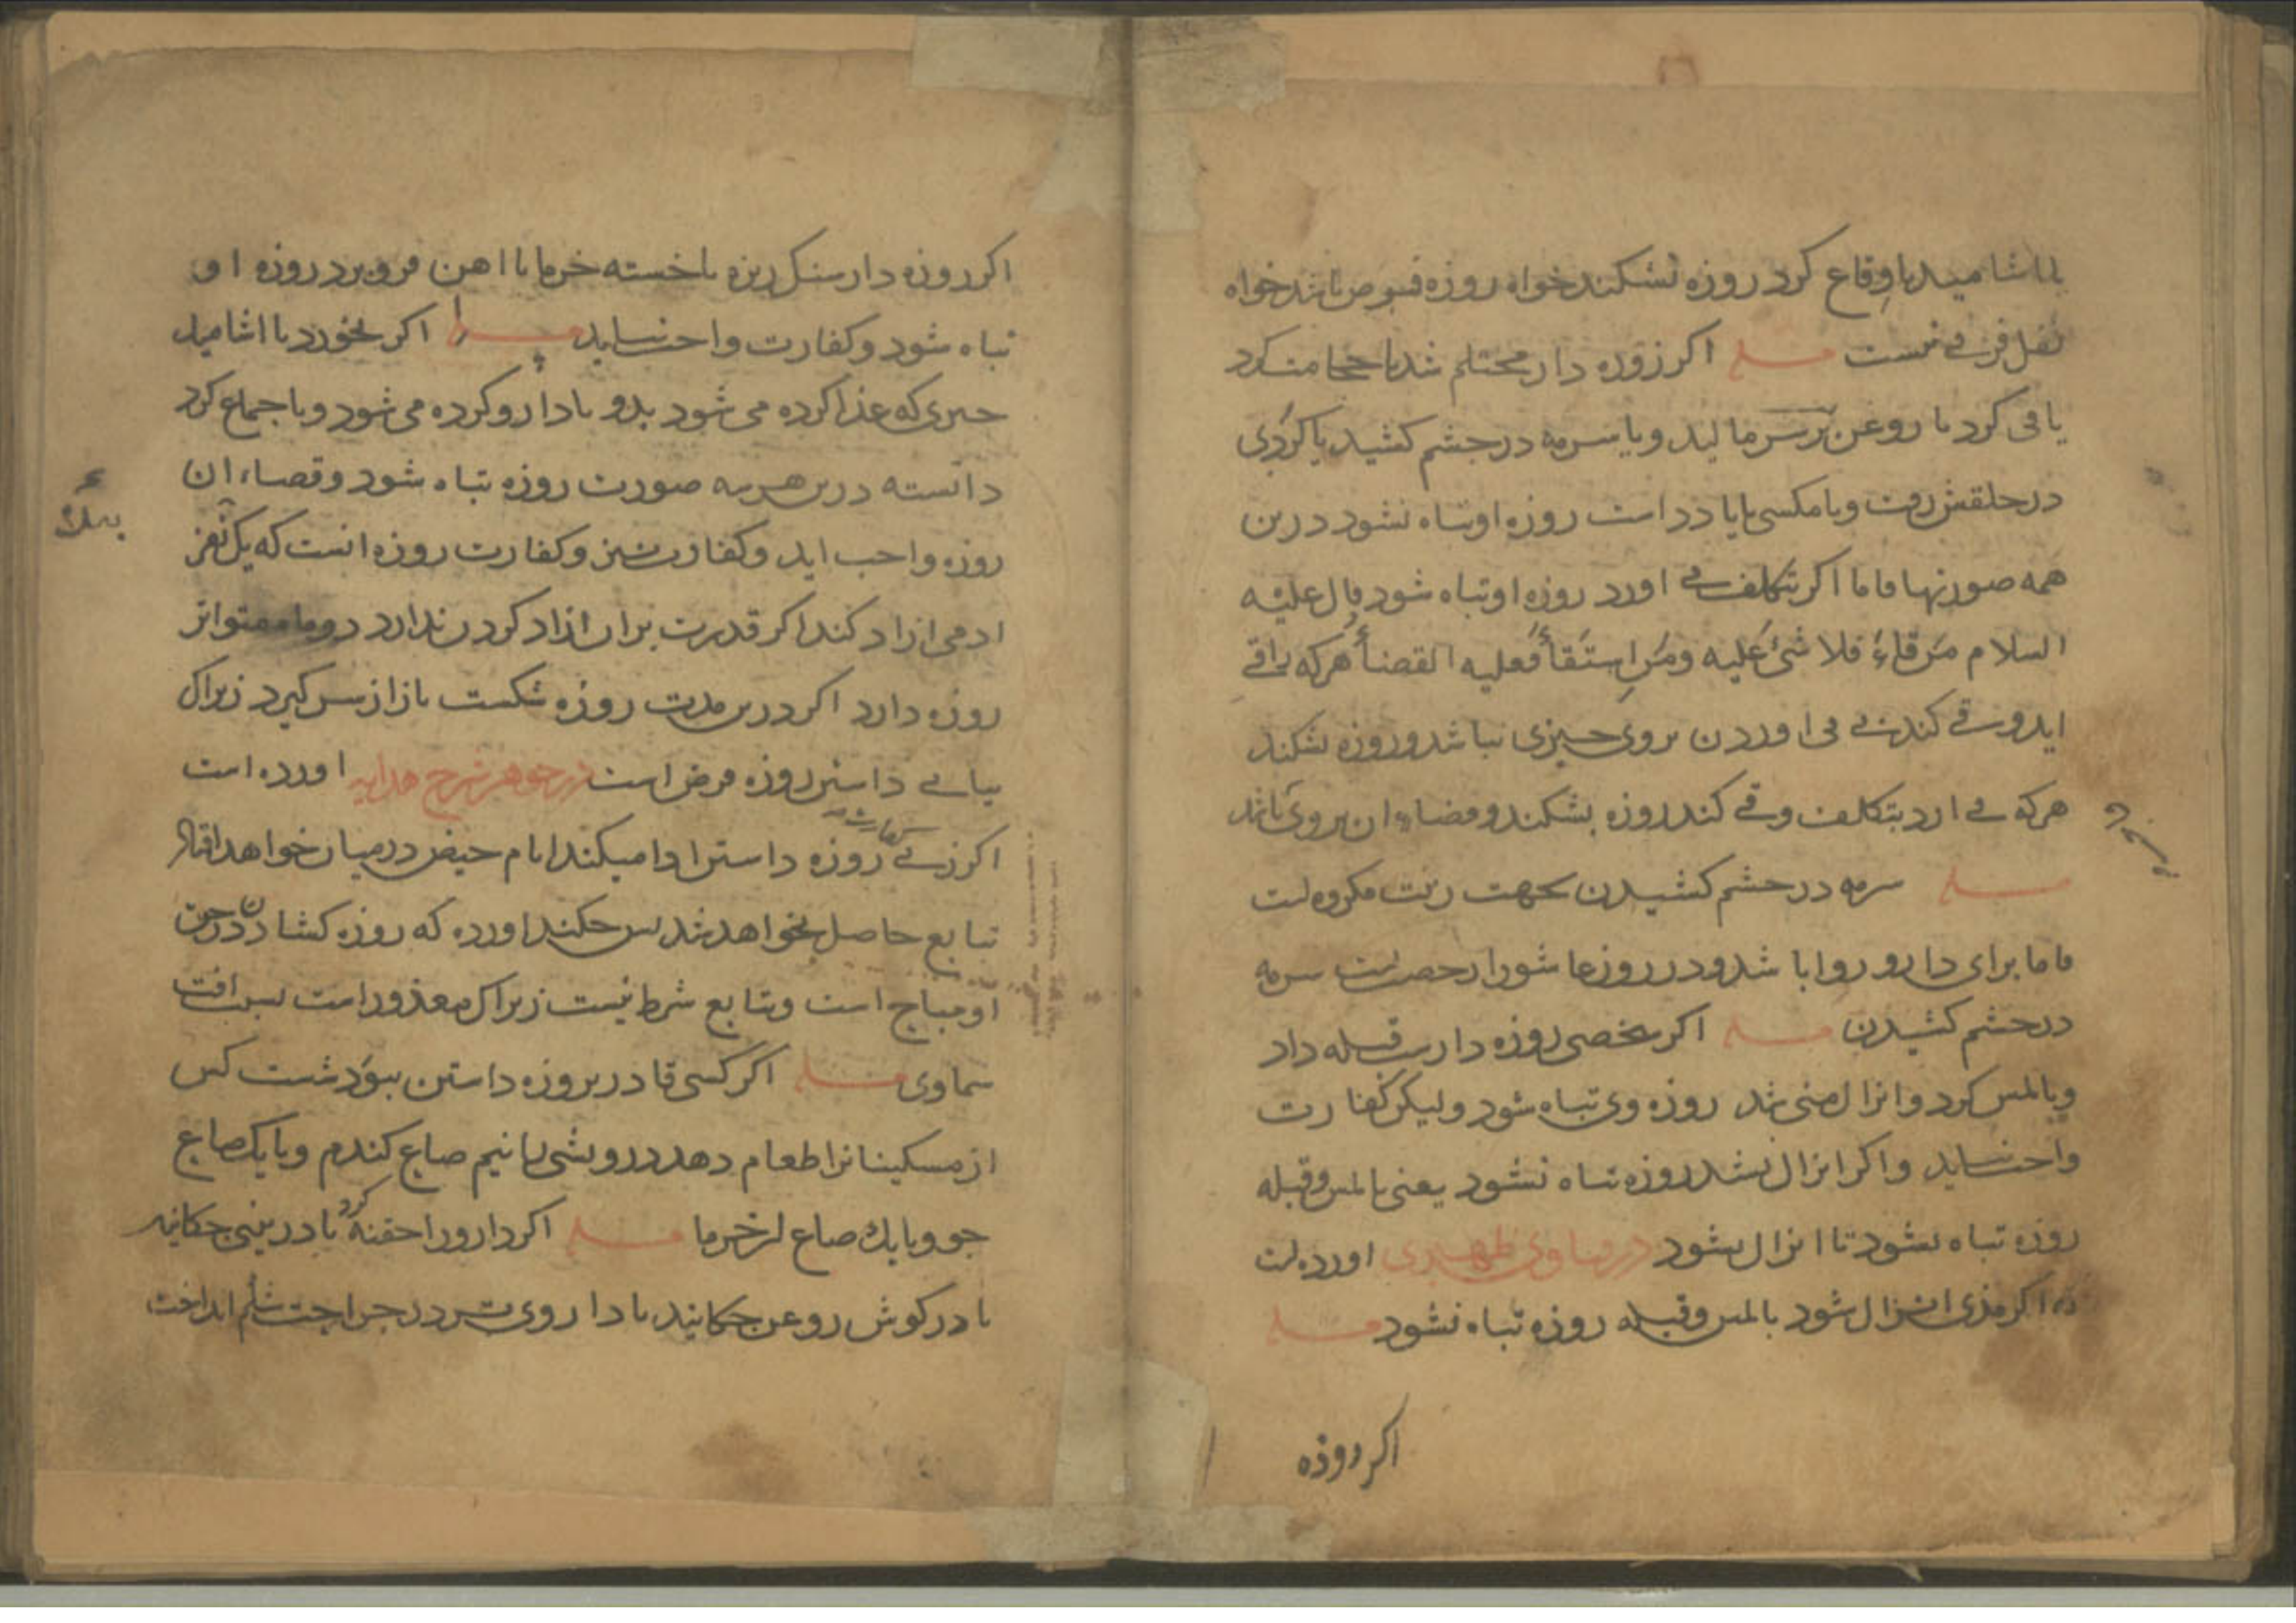 یا اشامید یا وقاع کرد روزه نشکند خواه روزه فرض باشد خواه
نفل فرقی نیست مسله اکر روزه دار محتلم شد یا حجامت کرد
یا قی کرد یا روغن بر سر مالید و یا سرمه در چشم کشید یا کردی
در حلقش رفت و یا مکسی یا دود است روزه او تباه نشود درین
همه صورتها فاما اکر بتکلف قی اورد روزه او تباه شود قال علیه
السلام من قاء فلا شئ علیه ومن استقأ فعلیه القضأ هر که را قی
اید و قی کند بی قی اوردن بروی چیزی نباشد و روزه نشکند
هر که قی ارد بتکلف و قی کند روزه بشکند و قضاء ان بروی باشد
مسله سرمه در چشم کشیدن بجهت زینت مکروه است
فاما برای دارو روا باشد و در روز عاشورا رخصت است سرمه
در چشم کشیدن مسله اکر شخصی روزه دار قبله داد
و یا لمس کرد و انزال منی شد روزه وی تباه شود ولیکن کفارت
واجب نیاید و اکر انزال نشد روزه تباه نشود یعنی با لمس و قبله
روزه تباه نشود تا انزال نشود در فتاوی ظهیری اورده است
که اکر مذی انزال شود با لمس و قبله روزه تباه نشود مسله
اکر روزه
اکر روزه دار سنک ریزه یا خسته خرما یا اهن فرو برد روزه او
تباه شود و کفارت واجب نیاید مسله اکر بخورد یا اشامید
چیزی که غذا کرده می شود بدو یا دارو کرده می شود و یا جماع کرد
دانسته درین هر سه صورت روزه تباه شود و قضاء ان
روزه واجب اید و کفارت نیز و کفارت روزه انست که یک نفر
ادمی ازاد کند اکر قدرت بران ازاد کردن ندارد دو ماه متواتر
روزه دارد اکر درین مدت روزه شکست باز از سر کیرد زیراک
پیاپی داشتن روزه فرض است در جوهر شرح هدایه اورده است
اکر زنی کفارت روزه داشتن ادا میکند ایام حیض در میان خواهد افتاد
تتابع حاصل نخواهد شد پس چکند اورده که روزه کشادن در حق
او مباح است و تتابع شرط نیست زیراک معذور است بسبب افت
سماوی مسله اکر کسی قادر بر روزه داشتن نبود شست کس
از مسکینانرا طعام دهد درویشی را نیم صاع کندم و یا یک صاع
جو و یا یک صاع از خرما مسله اکر دارو را حقنه کرد یا در بینی چکانید
یا در کوش روغن چکانید یا داروی تر در جراحت شکم انداخت